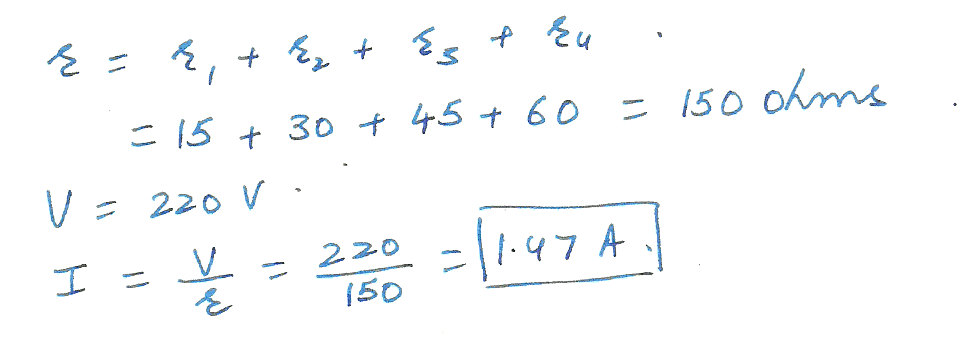 R = R₁ + R₂ + R₃ + R₄
= 15 + 30 + 45 + 60 = 150 ohms
V = 220 V
I = V/R = 220/150 = 1.47 A.